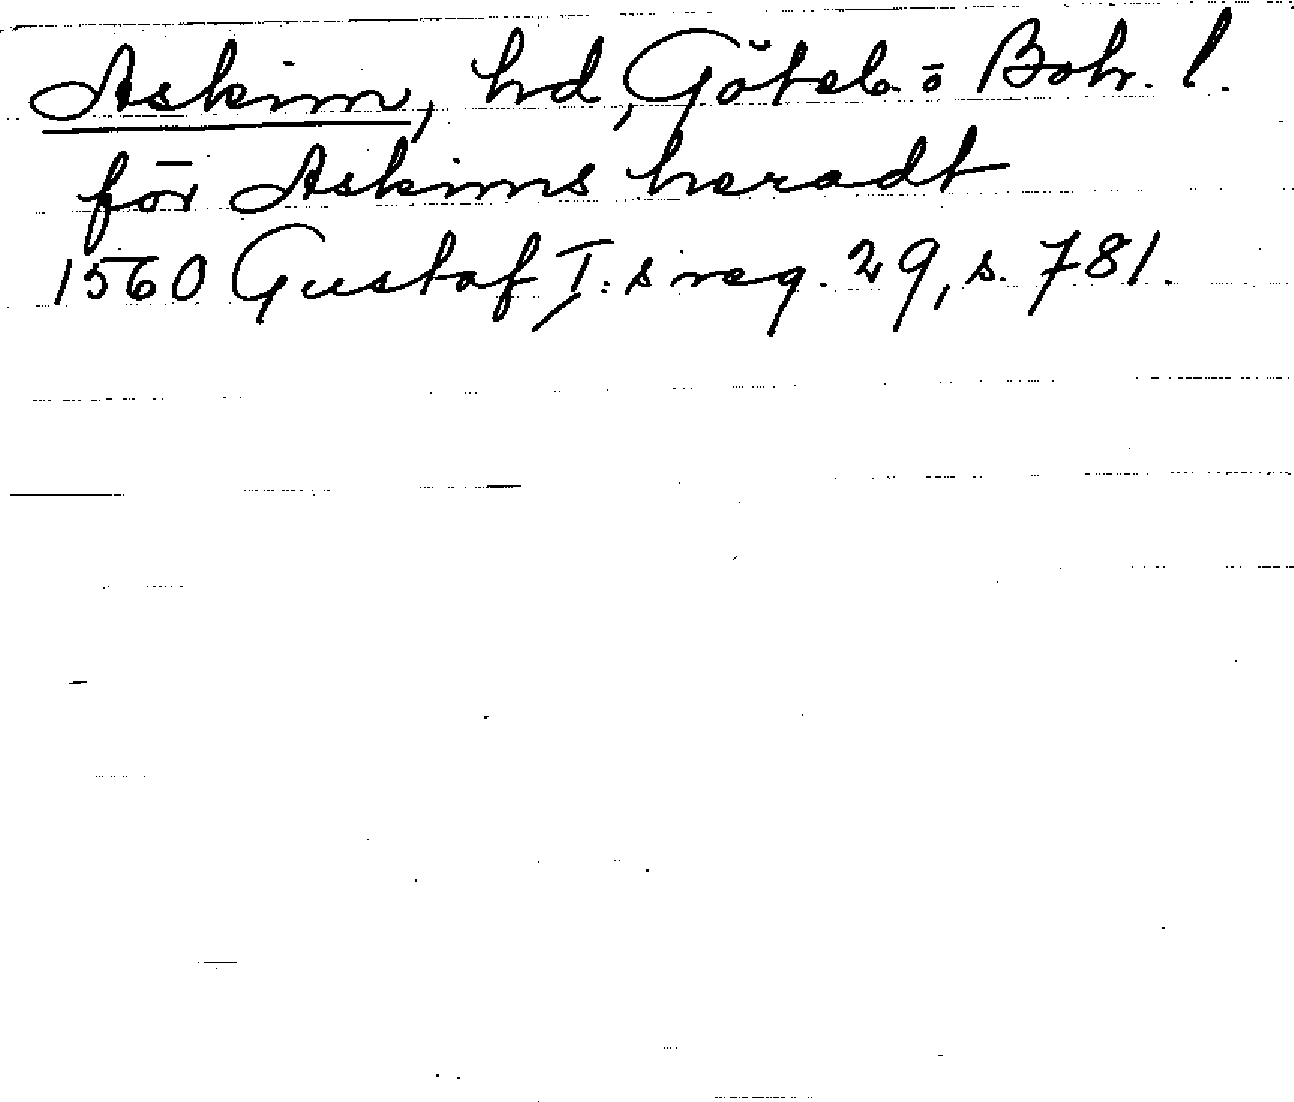 Askim, hd, Göteb. o Boh. l.
för Askims heradt
1560 Gustaf I:s reg. 29, s. 781.